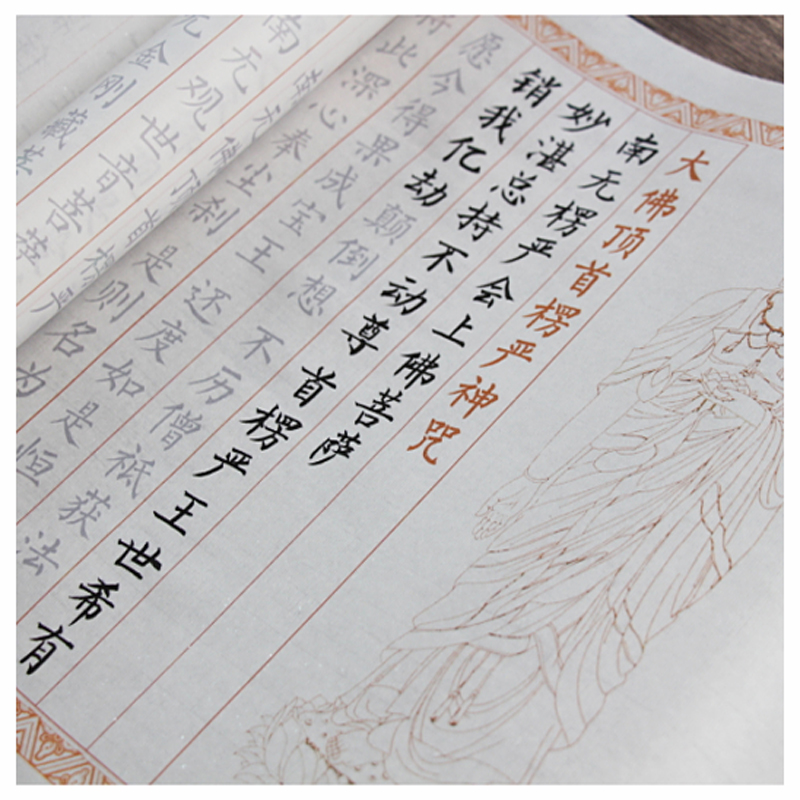 大佛顶首楞严神咒
南无楞严会上佛菩萨
妙湛总持不动尊 首楞严王世希有
销我亿劫颠倒想 不历僧祇获法
愿今得果成宝王 还度如是恒
此深心奉尘刹 是则名为
南无
无观世音菩萨
无金刚藏菩